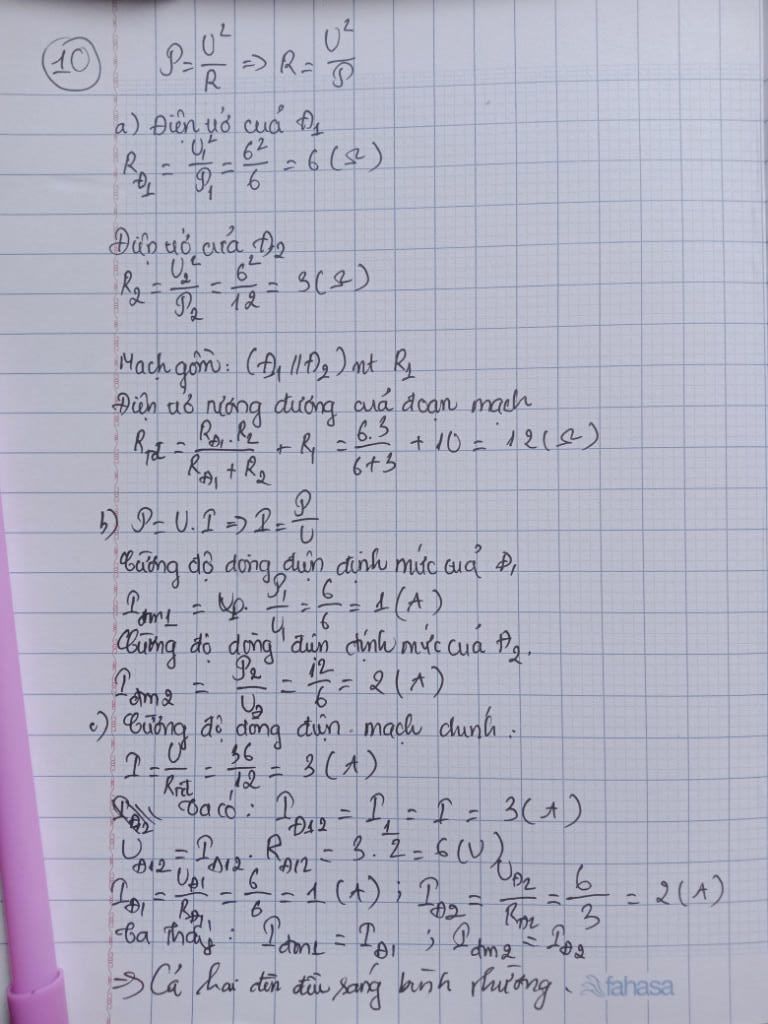 10 P = U²/R => R = U²/P
a) Điện trở của Đ1
R_Đ1 = U1²/P1 = 6²/6 = 6 (Ω)
Điện trở của Đ2
R2 = U2²/P2 = 6²/12 = 3 (Ω)
Mạch gồm: (Đ1 // Đ2) nt R1
Điện trở tương đương của đoạn mạch
R_tđ = R_Đ1 . R2 / (R_Đ1 + R2) + R1 = 6.3/(6+3) + 10 = 12 (Ω)
b) P = U.I => I = P/U
Cường độ dòng điện định mức của Đ1
I_đm1 = P1/U1 = 6/6 = 1 (A)
Cường độ dòng điện định mức của Đ2.
I_đm2 = P2/U2 = 12/6 = 2 (A)
c) Cường độ dòng điện mạch chính:
I = U/R_tđ = 36/12 = 3 (A)
Ta có: I_Đ12 = I1 = I = 3 (A)
U_Đ12 = I_Đ12 . R_Đ12 = 3 . 2 = 6 (V)
I_Đ1 = U_Đ1/R_Đ1 = 6/6 = 1 (A) ; I_Đ2 = U_Đ2/R_Đ2 = 6/3 = 2 (A)
Ta thấy: I_đm1 = I_Đ1 ; I_đm2 = I_Đ2
=> Cả hai đèn đều sáng bình thường.
fahasa